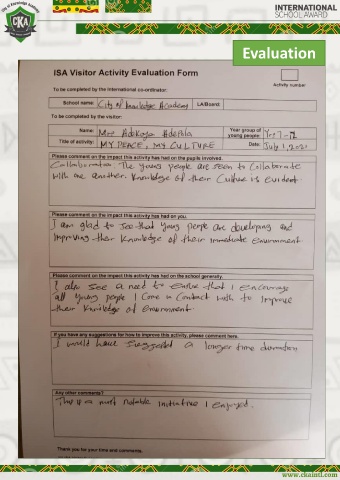 City of Knowledge Academy
CKA
INTERNATIONAL
SCHOOL AWARD
Evaluation
ISA Visitor Activity Evaluation Form
Activity number
To be completed by the International co-ordinator:
School name: City of Knowledge Academy LA/Board:
To be completed by the visitor:
Name: Mrs Adekoya Year group of
young people: Yrs 7-12
Title of activity: MY PEACE, MY CULTURE Date: July 1, 2021
Please comment on the impact this activity has had on the pupils involved.
Collaboration: The young people are seen to Collaborate
with one another. Knowledge of their Culture is evident
Please comment on the impact this activity has had on you.
I am glad to see that young people are developing and
improving their knowledge of their immediate environment.
Please comment on the impact this has had on the school generally.
I also see a need to ensure that I encourage
all young people I come in contact with to improve
their knowledge of environment
If you have any suggestions for how to improve this activity, please comment here.
I would have suggested a longer time duration
Any other comments?
This is a most notable initiative I enjoyed.
Thank you for your time and comments.
www.ckaintl.com